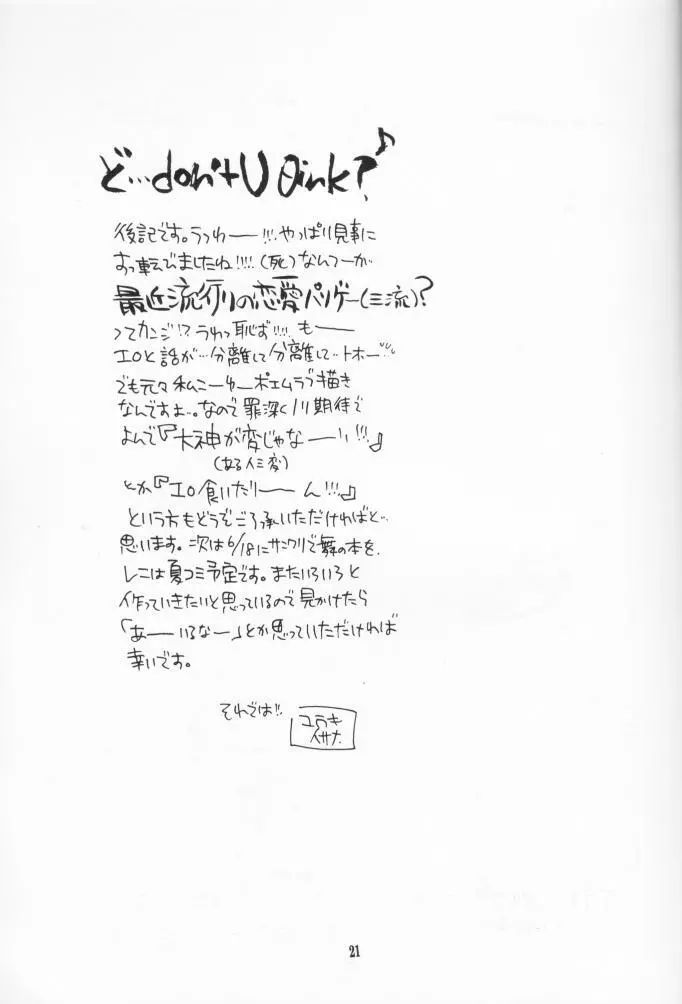 ど…don't U θink?♪
後記です。うっわーー!!!やっぱり見事に
すっ転んでましたね!!!!(死)なんつーか
最近流行りの恋愛パリゲー(三流)?
ってカンジ!?うわっ恥ず!!!!もーー
エロと話が…分離して分離して…トホー
でも元々私こーゆーポエムラブ描き
なんですよ…。なので罪深くノリ期待で
よんで『大神が変じゃなーーい!!!』
(ある人ミ変)
とか『エロ食いたりーーん!!!』
という方もどうぞご了承いただければと…
思います。次は6/18にサンクリで舞の本を、
レニは夏コミ予定です。またいろいろと
作っていきたいと思っているので見かけたら
「あーーいるなー」とか思っていただければ
幸いです。
それでは!!
ユラキ
イサナ
21